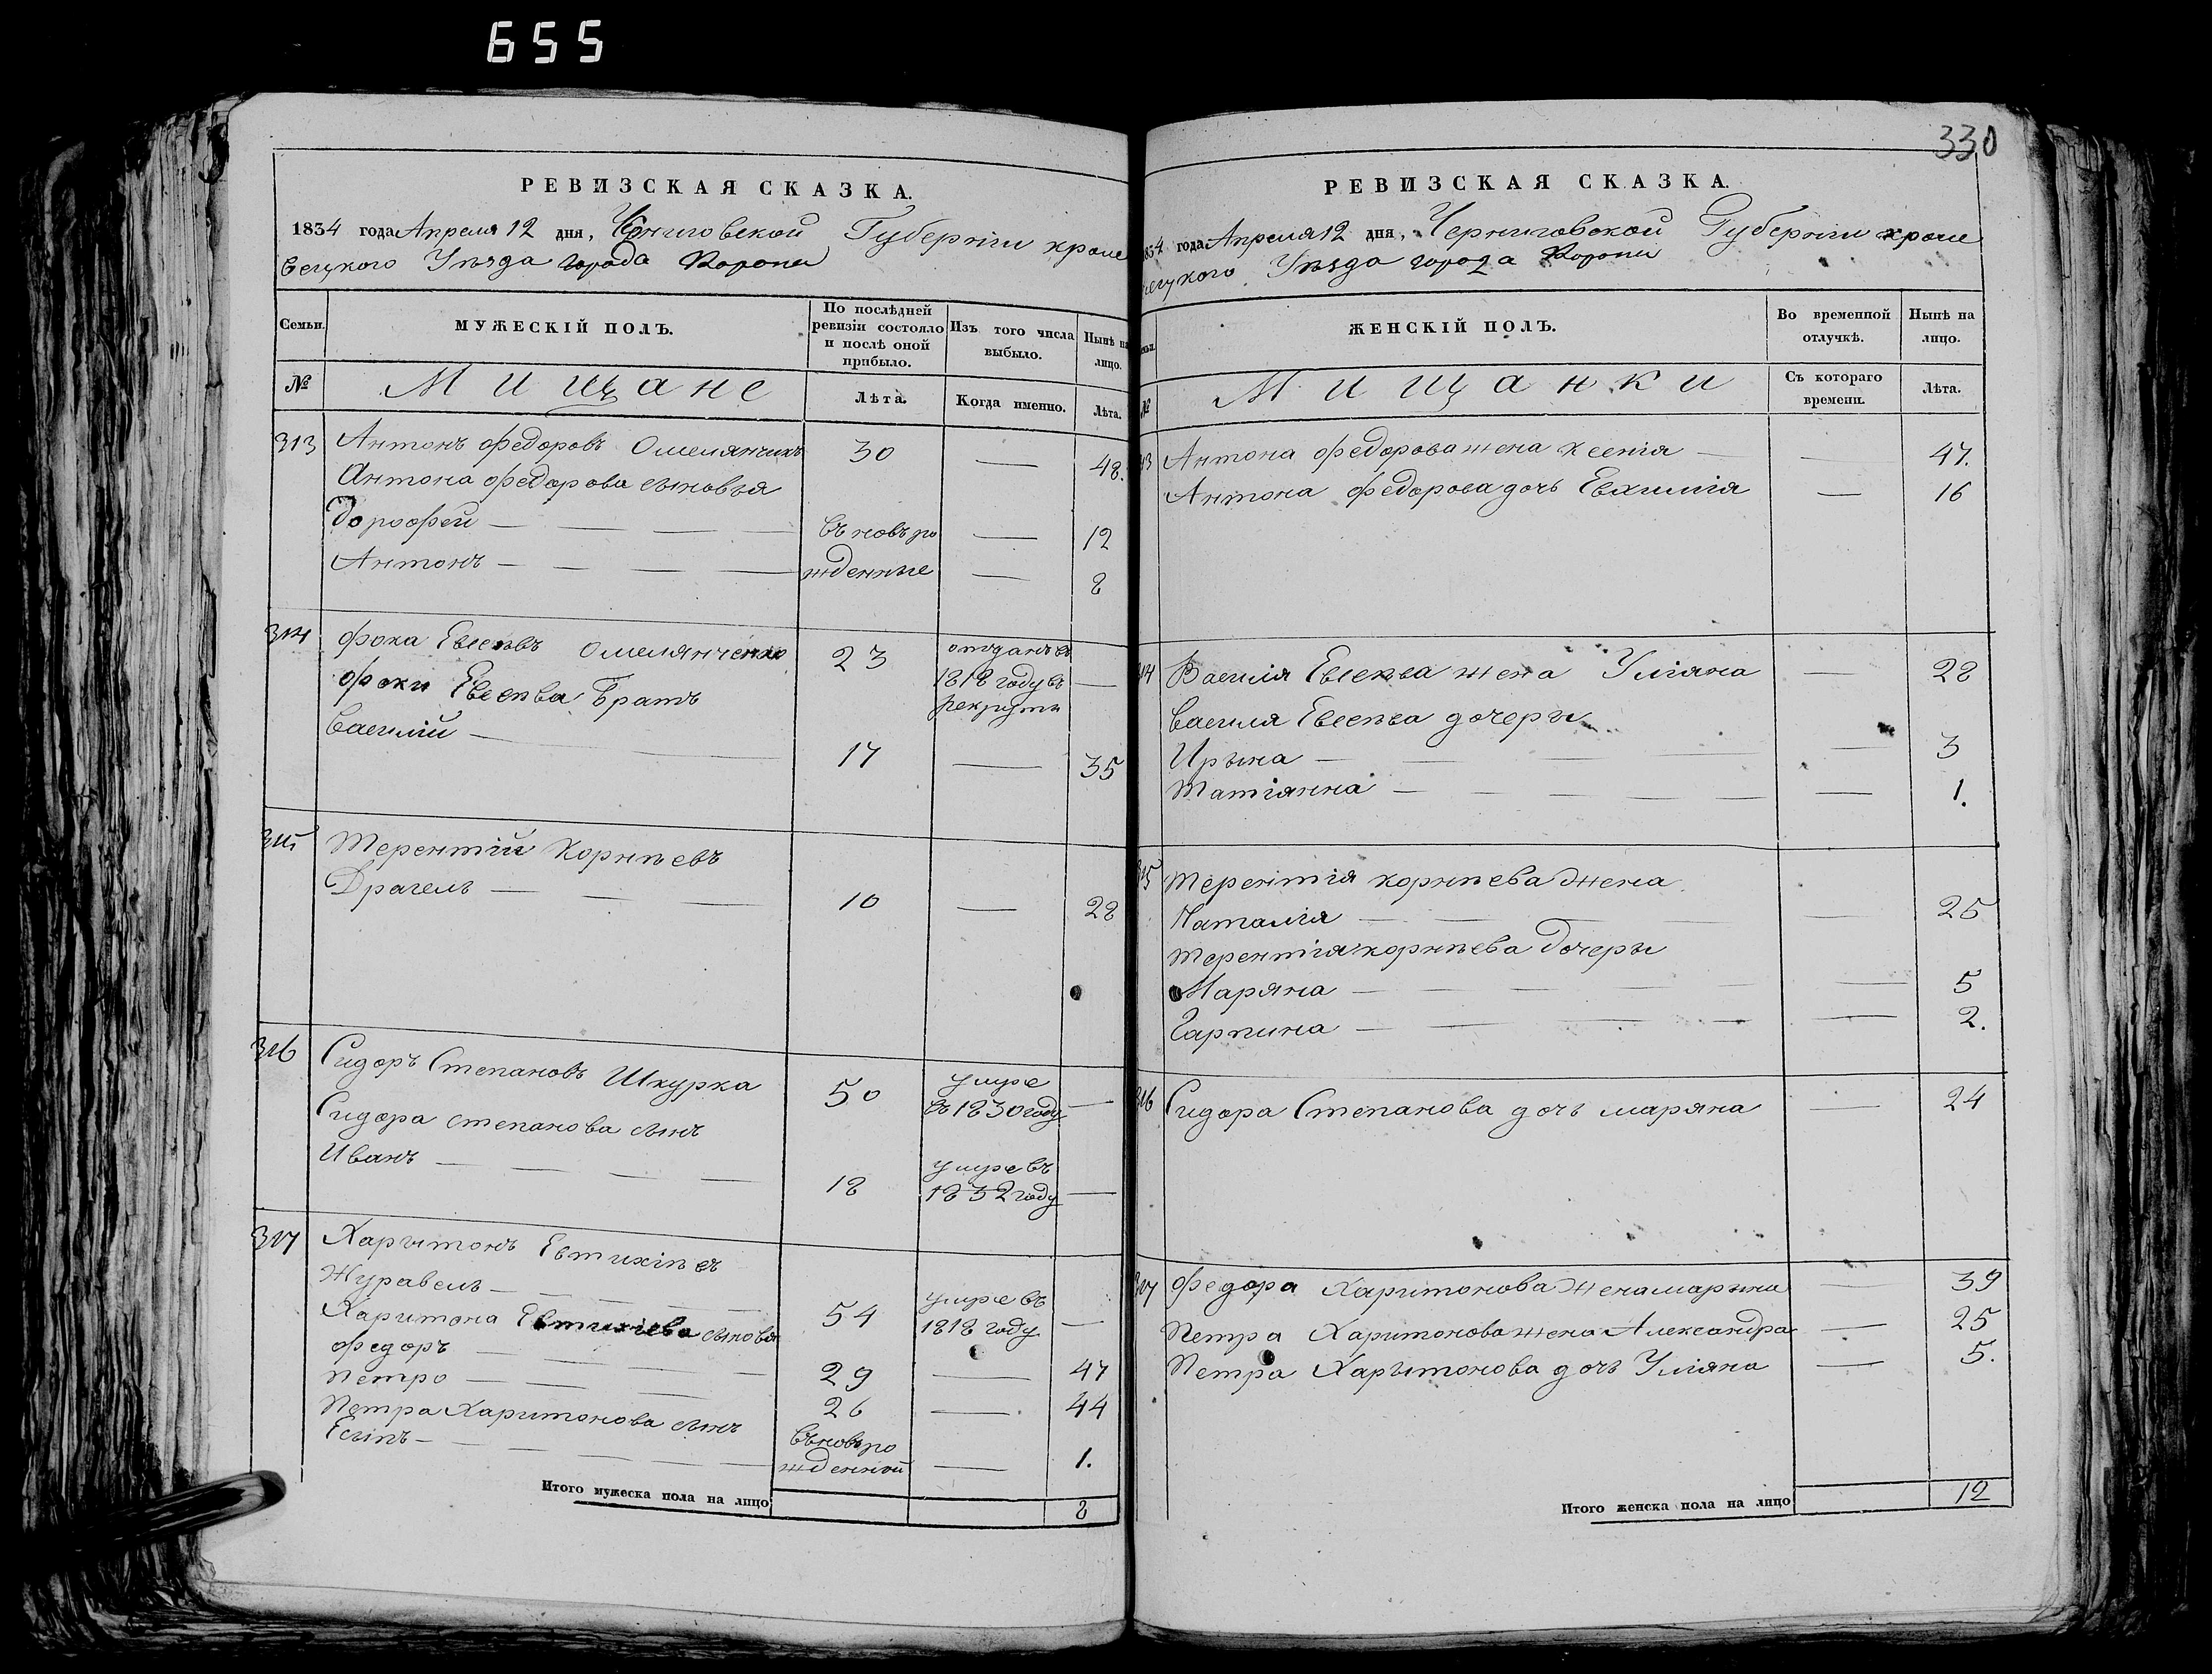 655
РЕВИЗСКАЯ СКАЗКА.
1834 года Апреля 12 дня, Черниговской Губернiи кроле
вецкого Уѣзда города Коропа
Семьи.
МУЖЕСКIЙ ПОЛЪ.
По послѣдней ревизiи состояло и послѣ оной прибыло.
Изъ того числа выбыло.
Нынѣ на лицо.
№
Мищане
Лѣта.
Когда именно.
Лѣта.
313 Антонъ Федоровъ Омелянчикъ 30 — 48.
Антона Федорова сыновья
Дорофей — — — въ новъ ро — 12
Антонъ — — — — жденные — 8
314 Фока Евсѣевъ Омелянченко 23 отданъ въ
1818 году въ —
рекруты
Фоки Евсѣева Братъ
Василiй — 17 — 35
315 Терентiй Корнѣевъ
Драгель — — — 10 — 28
316 Сидоръ Степановъ Шкурка 50 умре
въ 1830 году —
Сидора Степанова сынъ
Иванъ — — — — 18 умре въ
1832 году —
317 Харытонъ Евтихiевъ
Журавель — — — — 54 умре въ
1818 году —
Харитона Евтихiева сыновя
Федоръ — — — — 29 — 47
Петро — — — — 26 — 44
Петра Харитонова сынъ
Есiпъ — — — — въ новъ ро
жденный — 1.
Итого мужеска пола на лицо 8
330
РЕВИЗСКАЯ СКАЗКА.
1834 года Апреля 12 дня, Черниговской Губернiи кроле
вецкого Уѣзда города Коропа
№
ЖЕНСКIЙ ПОЛЪ.
Во временной отлучкѣ.
Нынѣ на лицо.
Мищанки
Съ котораго времени.
Лѣта.
313 Антона Федорова жена Ксенiя — — 47.
Антона Федорова дочь Евхимiя — 16
314 Василiя Евсѣева жена Улiяна — 28
Василя Евсѣева дочеры
Ирына — — — — 3
Татiянна — — — — — — 1.
315 Терентiя Корнѣева жена
Наталiя — — — — 25
Терентiя Корнѣева дочеры
Маряна — — — — — 5
Гарпина — — — — — 2.
316 Сидора Степанова дочь Маряна — 24
317 Федора Харитонова жена Марына — 39
Петра Харитонова жена Александра — 25
Петра Харытонова дочь Улiяна — 5.
Итого женска пола на лицо 12